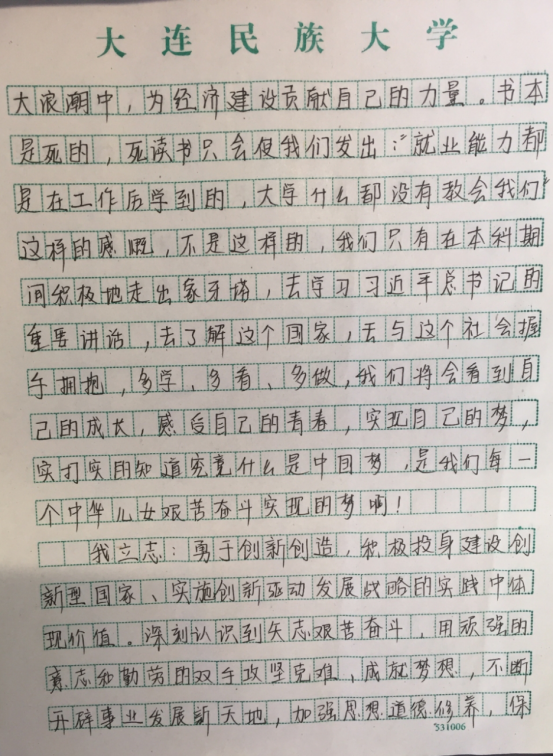 大连民族大学
大浪潮中，为经济建设贡献自己的力量。书本
是死的，死读书只会使我们发出：“就业能力都
是在工作后学到的，大学什么都没有教会我们”
这样的感慨，不是这样的，我们只有在本科期
间积极地走出象牙塔，去学习习近平总书记的
重要讲话，去了解这个国家，去与这个社会握
手拥抱，多学、多看、多做，我们将会看到自
己的成长，感受自己的青春，实现自己的梦，
实打实的知道究竟什么是中国梦，是我们每一
个中华儿女艰苦奋斗实现的梦啊！
我立志：勇于创新创造，积极投身建设创
新型国家、实施创新驱动发展战略的实践中体
现价值。深刻认识到矢志艰苦奋斗，用顽强的
意志和勤劳的双手攻坚克难、成就梦想，不断
开辟事业发展新天地，加强思想道德修养，保
331006